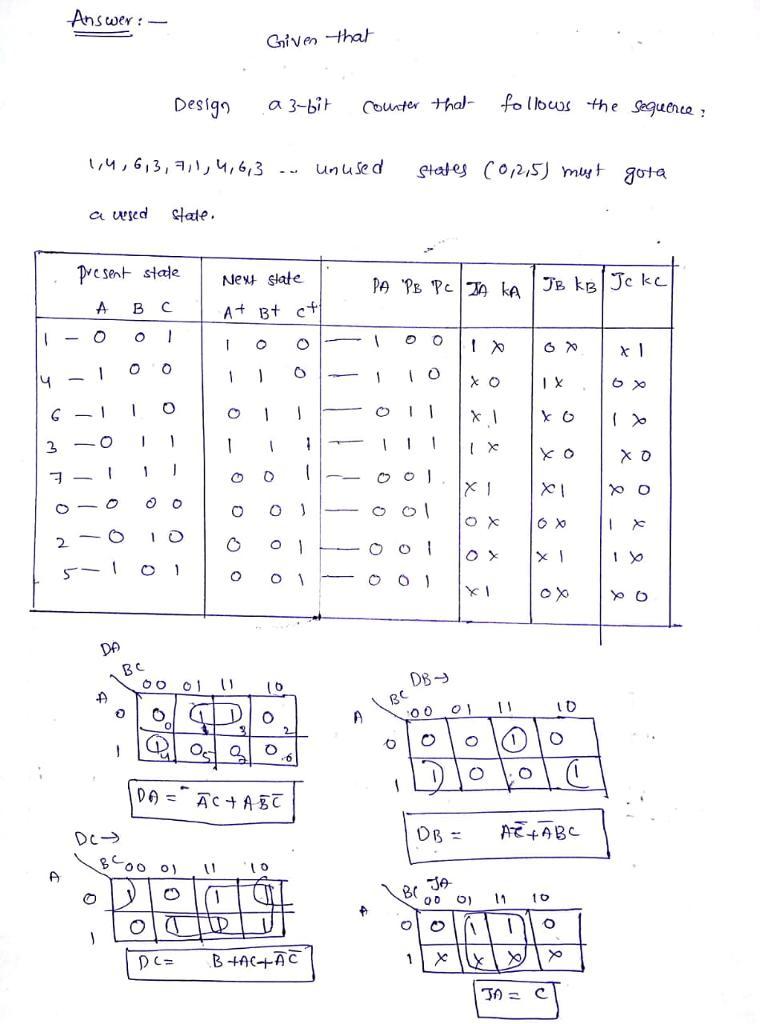 Answer : —
Given that
Design a 3-bit counter that follows the sequence :
1,4,6,3,7,1,4,6,3 ... unused states (0,2,5) must gota
a used state.
Present state Next state PA PB PC JA KA JB KB JC KC
A B C A+ B+ C+
1 - 0 0 1 1 0 0 — 1 0 0 1 X 0 X X 1
4 - 1 0 0 1 1 0 — 1 1 0 X 0 1 X 0 X
6 - 1 1 0 0 1 1 — 0 1 1 X 1 X 0 1 X
3 - 0 1 1 1 1 1 — 1 1 1 1 X X 0 X 0
7 - 1 1 1 0 0 1 — 0 0 1 X 1 X 1 X 0
0 - 0 0 0 0 0 1 — 0 0 1 0 X 0 X 1 X
2 - 0 1 0 0 0 1 — 0 0 1 0 X X 1 1 X
5 - 1 0 1 0 0 1 — 0 0 1 X 1 0 X X 0
DA
BC
00 01 11 10
A
0 0 0 1 1 1 3 0 2
1 1 4 0 5 0 7 0 6
DA = A̅C + AB̅C̅
DB →
BC
00 01 11 10
A
0 0 0 1 0
1 1 0 0 1
DB = AC̅ + A̅BC
DC →
BC 00 01 11 10
A
0 1 0 1 1
1 0 1 1 1
DC = B + AC + A̅C̅
JA
BC 00 01 11 10
A
0 0 1 1 0
1 X X X X
JA = C